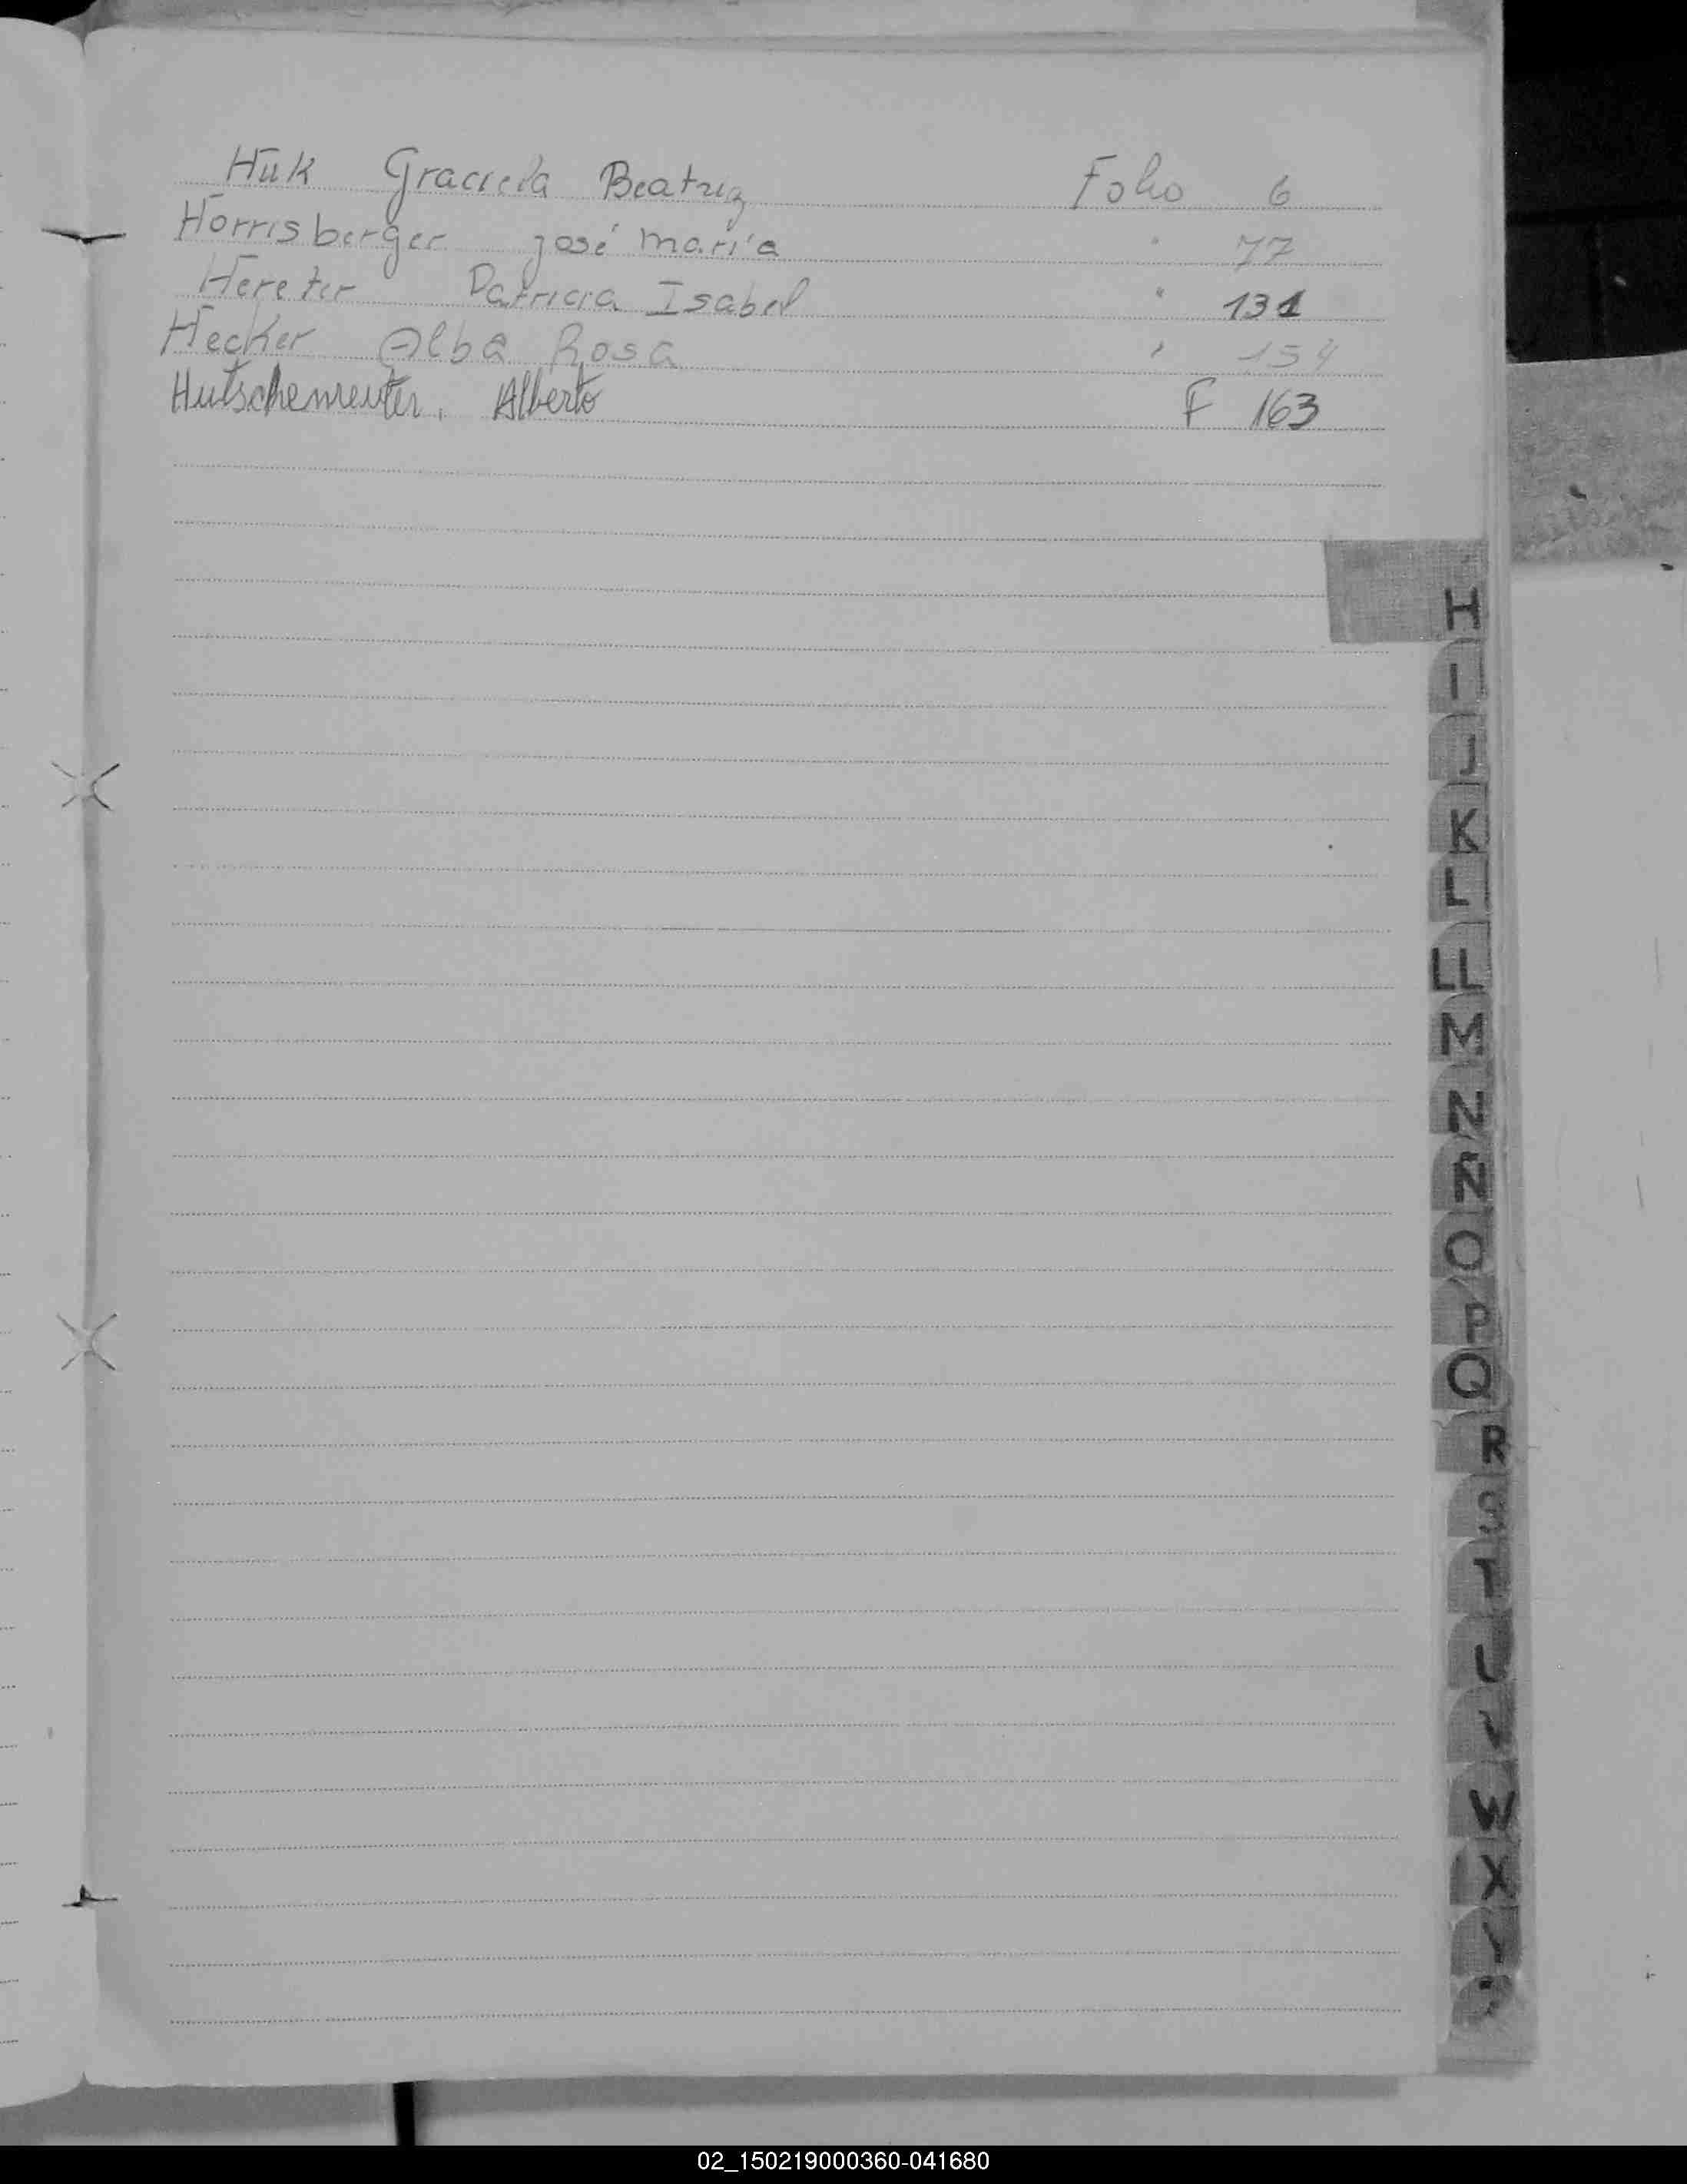 Huk Graciela Beatriz Folio 6
Horrisberger José María " 77
Hereter Patricia Isabel " 131
Hecker Alba Rosa " 154
Hutschenreuter, Alberto F 163
H
I
J
K
L
LL
M
N
Ñ
O
P
Q
R
S
T
U
V
W
X
Y
02_150219000360-041680